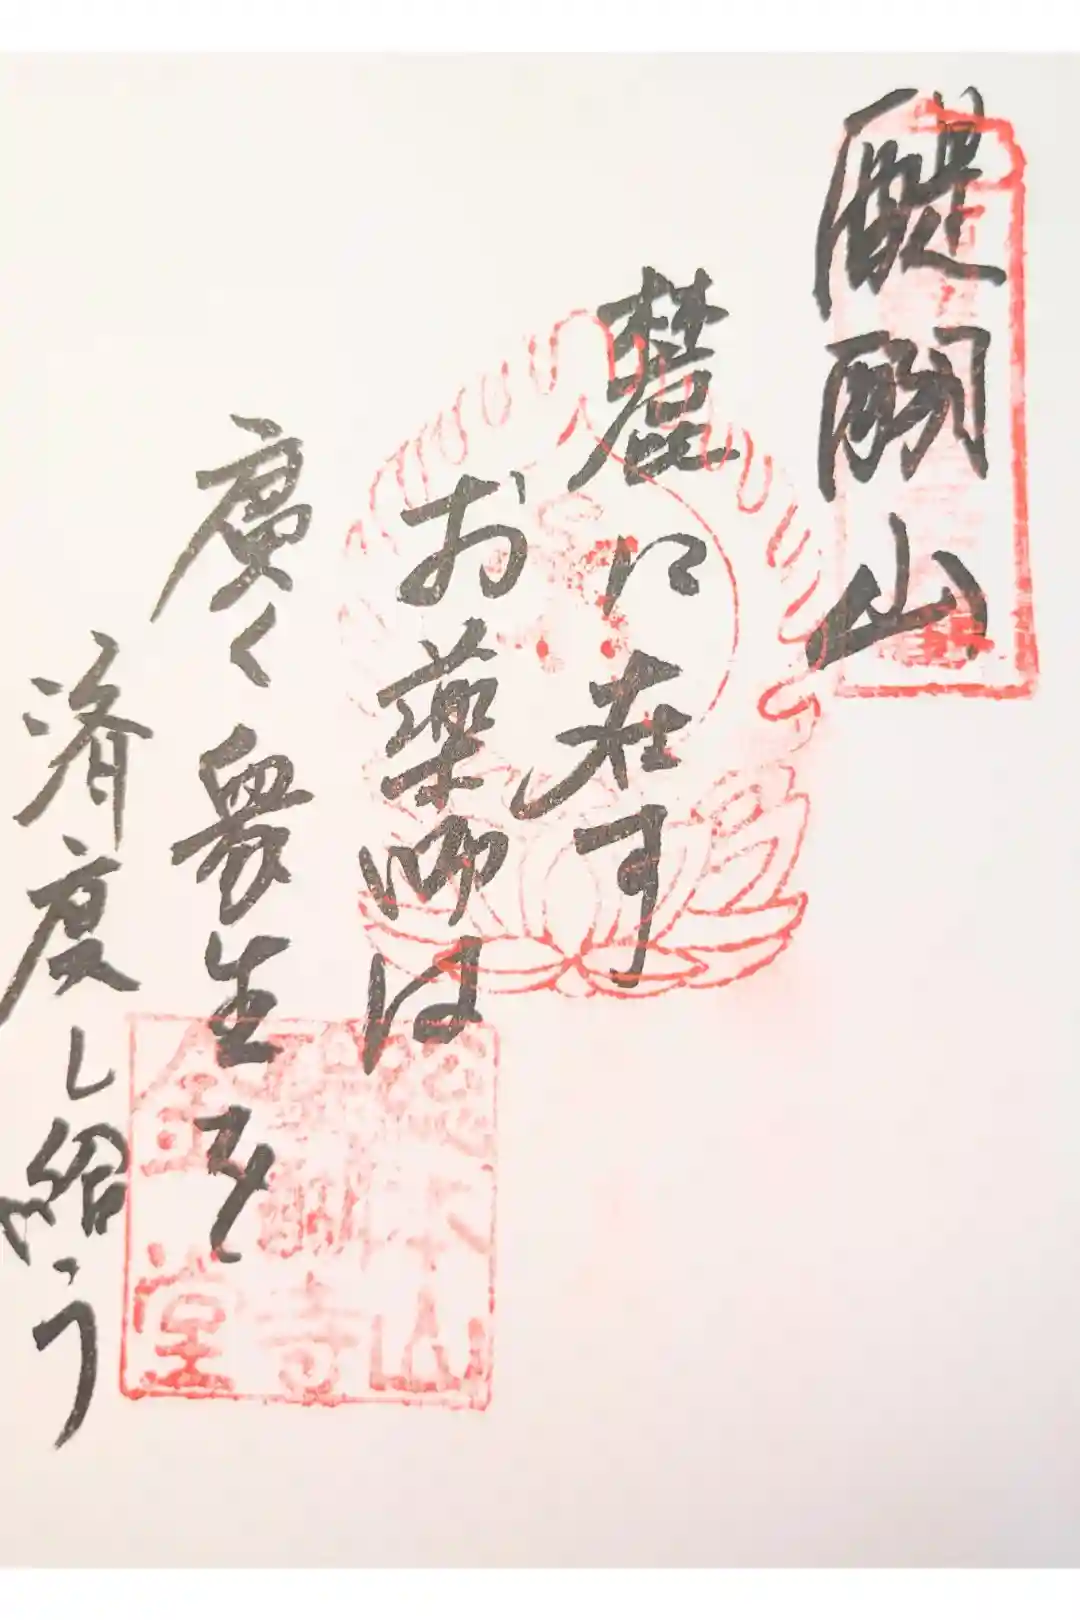 醍醐山
麓に在す
お薬師は
廣く衆生を
済度し給う
総本山
醍醐寺
金堂